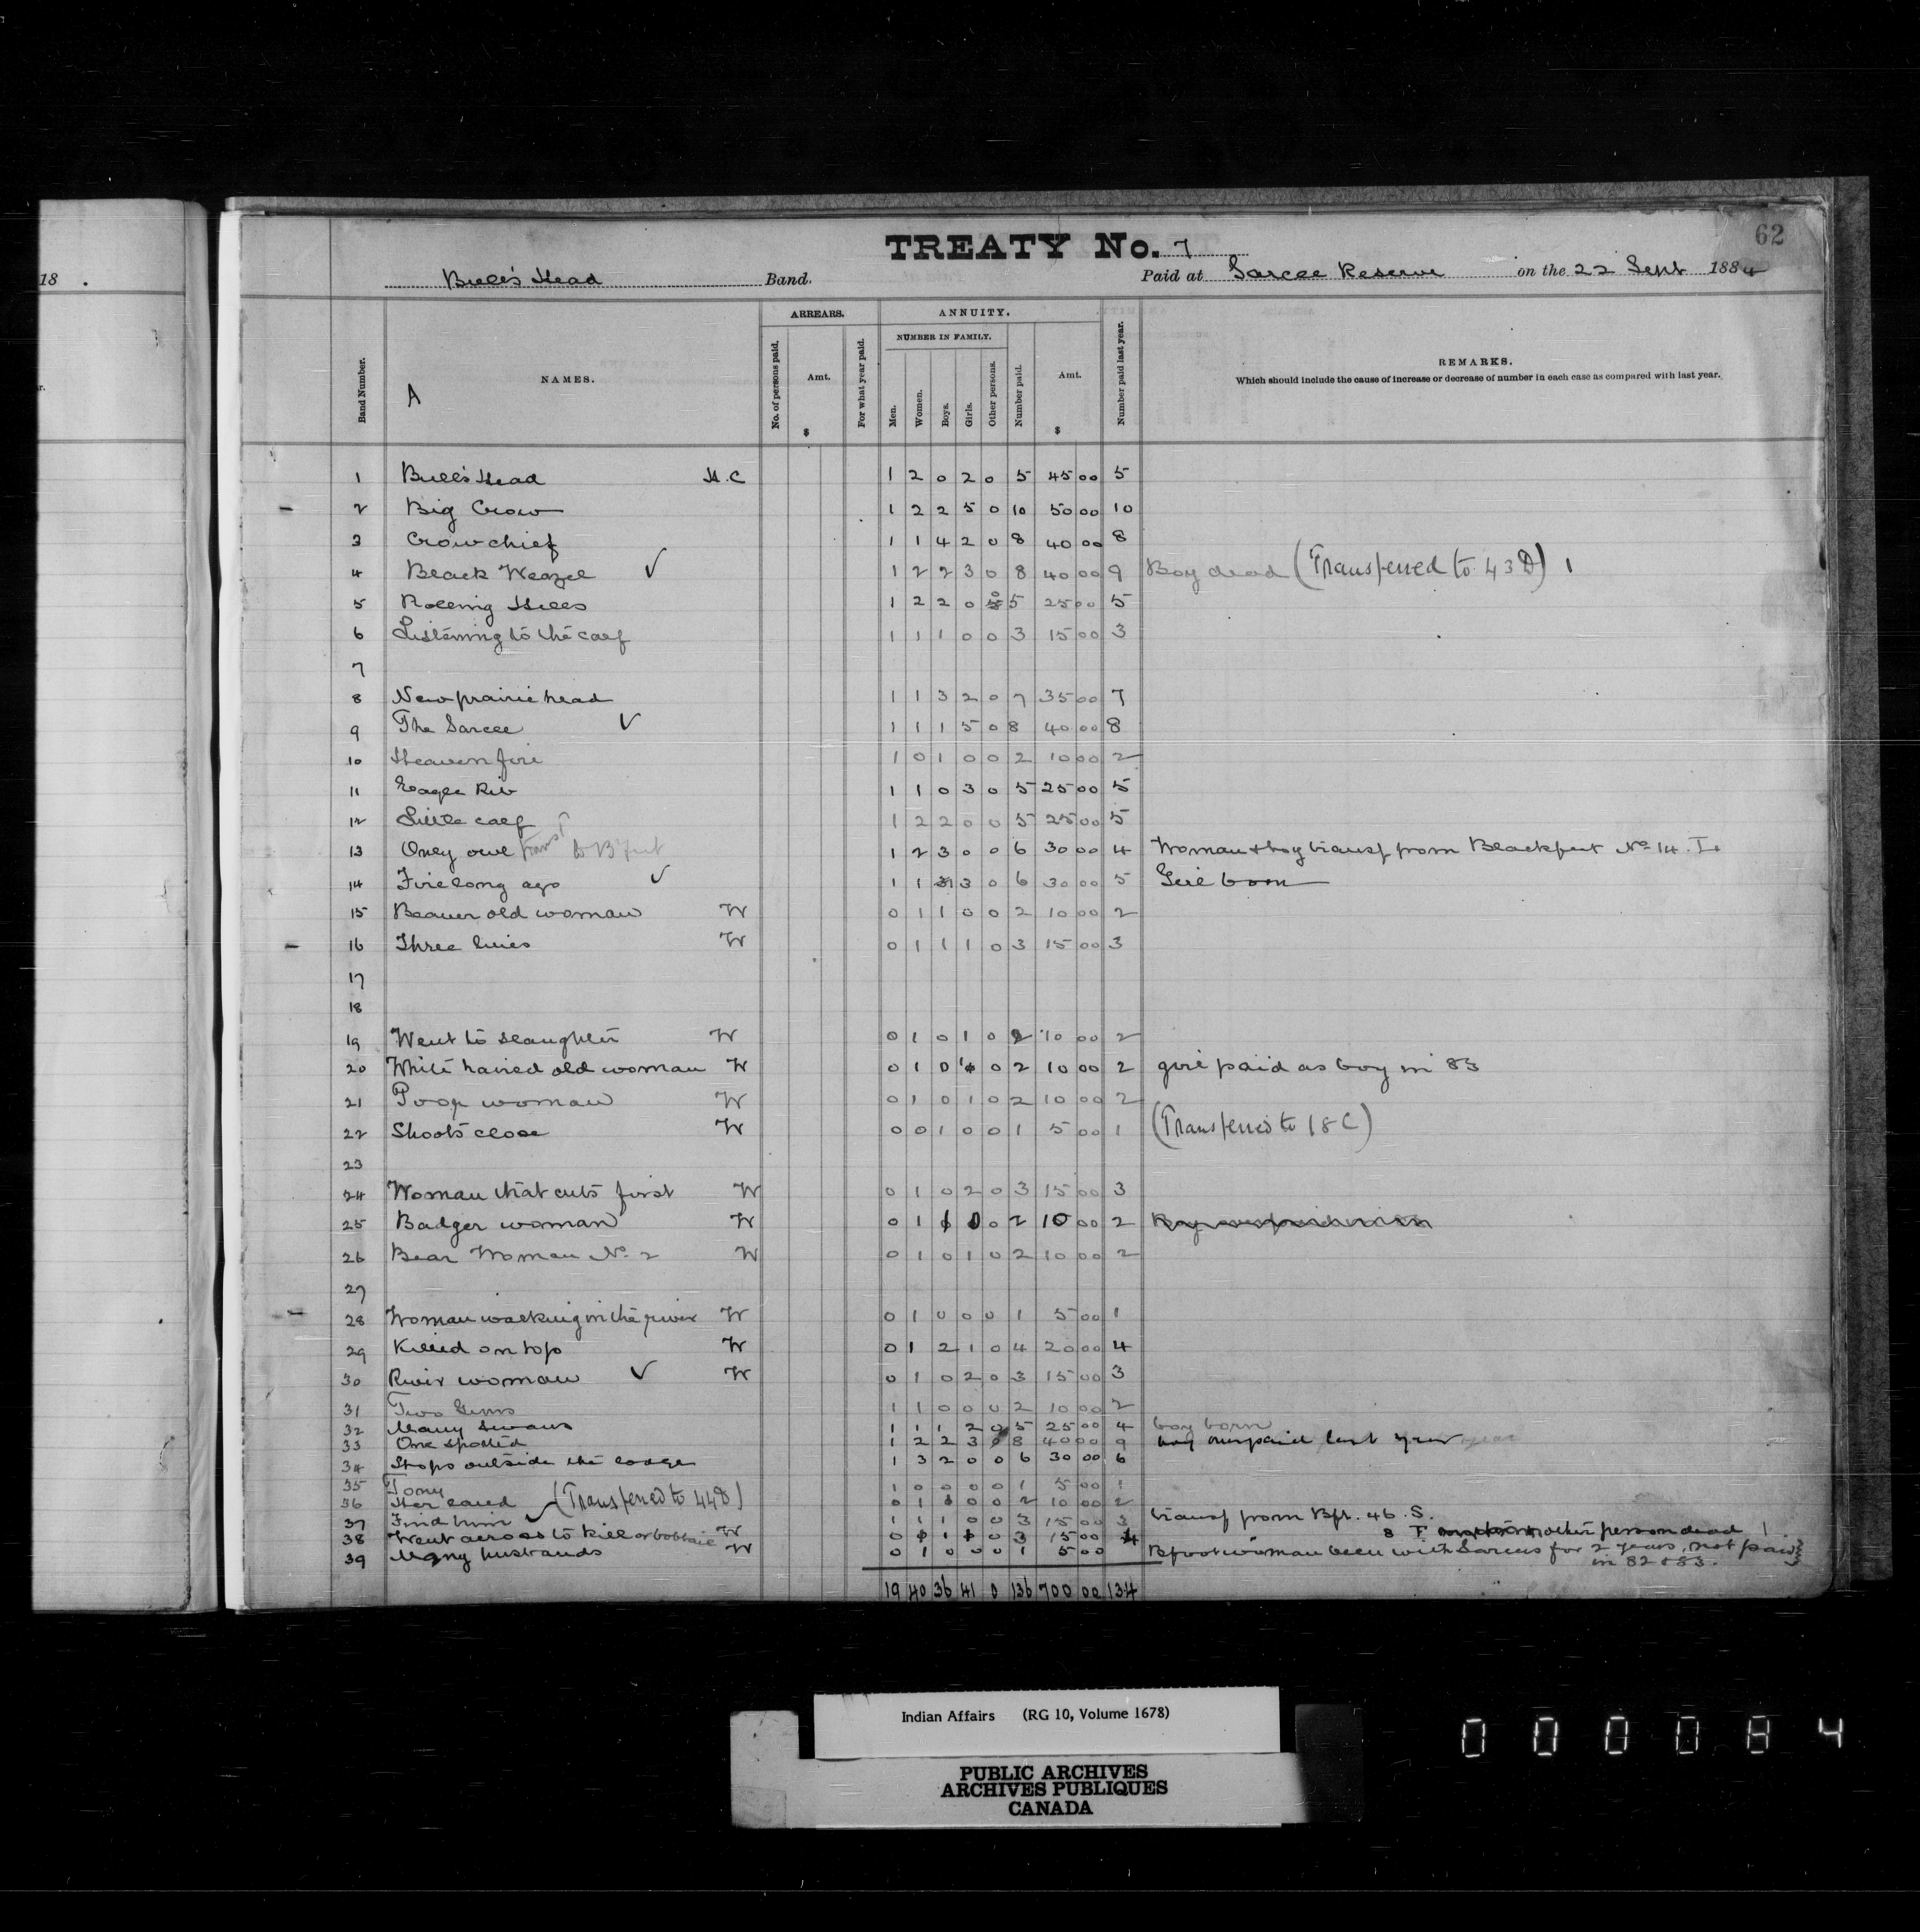 62
TREATY No. 7
18 .
Bull's Head Band. Paid at Sarcee Reserve on the 22 Sept 1884
ARREARS. ANNUITY.
NUMBER IN FAMILY.
Band Number. NAMES. No. of persons paid. Amt. For what year paid. Men. Women. Boys. Girls. Other persons. Number paid. Amt. Number paid last year. REMARKS.
Which should include the cause of increase or decrease of number in each case as compared with last year.
A
$ $
1 Bull's Head H.C 1 2 0 2 0 5 45 00 5
2 Big Crow 1 2 2 5 0 10 50 00 10
3 Crow chief 1 1 4 2 0 8 40 00 8
4 Black Weazel ✓ 1 2 2 3 0 8 40 00 9 Boy dead (Transferred to 43 D) 1
5 Rolling Hills 1 2 2 0 0 5 25 00 5
6 Listening to the calf 1 1 1 0 0 3 15 00 3
7
8 New prairie head 1 1 3 2 0 7 35 00 7
9 The Sarcee ✓ 1 1 1 5 0 8 40 00 8
10 Heaven fire 1 0 1 0 0 2 10 00 2
11 Eagle Rib 1 1 0 3 0 5 25 00 5
12 Little calf 1 2 2 0 0 5 25 00 5
13 Only owl Trans to B'feet 1 2 3 0 0 6 30 00 4 Woman & boy transf from Blackfeet No 14. I.
14 Fire long ago ✓ 1 1 1 3 0 6 30 00 5 Girl born
15 Beaver old woman W 0 1 1 0 0 2 10 00 2
16 Three lines W 0 1 1 1 0 3 15 00 3
17
18
19 Went to slaughter W 0 1 0 1 0 2 10 00 2
20 White haired old woman W 0 1 0 1 0 2 10 00 2 girl paid as boy in 83
21 Poor woman W 0 1 0 1 0 2 10 00 2
22 Shoots close W 0 0 1 0 0 1 5 00 1 (Transferred to 18 C)
23
24 Woman that cuts first W 0 1 0 2 0 3 15 00 3
25 Badger woman W 0 1 1 0 0 2 10 00 2
26 Bear Woman No 2 W 0 1 0 1 0 2 10 00 2
27
28 Woman walking in the river W 0 1 0 0 0 1 5 00 1
29 Killed on top W 0 1 2 1 0 4 20 00 4
30 River woman ✓ W 0 1 0 2 0 3 15 00 3
31 Two Guns 1 1 0 0 0 2 10 00 2
32 Many Swans 1 1 1 2 0 5 25 00 4 boy born
33 One spotted 1 2 2 3 0 8 40 00 9 boy overpaid last year
34 Stops outside the lodge 1 3 2 0 0 6 30 00 6
35 Tony 1 0 0 0 0 1 5 00 1
36 Her (Transferred to 44 D) 0 1 0 0 2 10 00 2
37 Find him ✓ 1 1 1 0 0 3 15 00 3 transf from Bft. 46. S.
38 Went across to kill or bobtail W 0 1 0 3 15 00 4 other person dead 1
39 Many husbands W 0 1 0 0 0 1 5 00 Bfoot woman been with Sarcees for 2 years, not paid
in 82 & 83.
19 40 36 41 0 136 700 00 134
Indian Affairs (RG 10, Volume 1678)
PUBLIC ARCHIVES
ARCHIVES PUBLIQUES
CANADA
000084